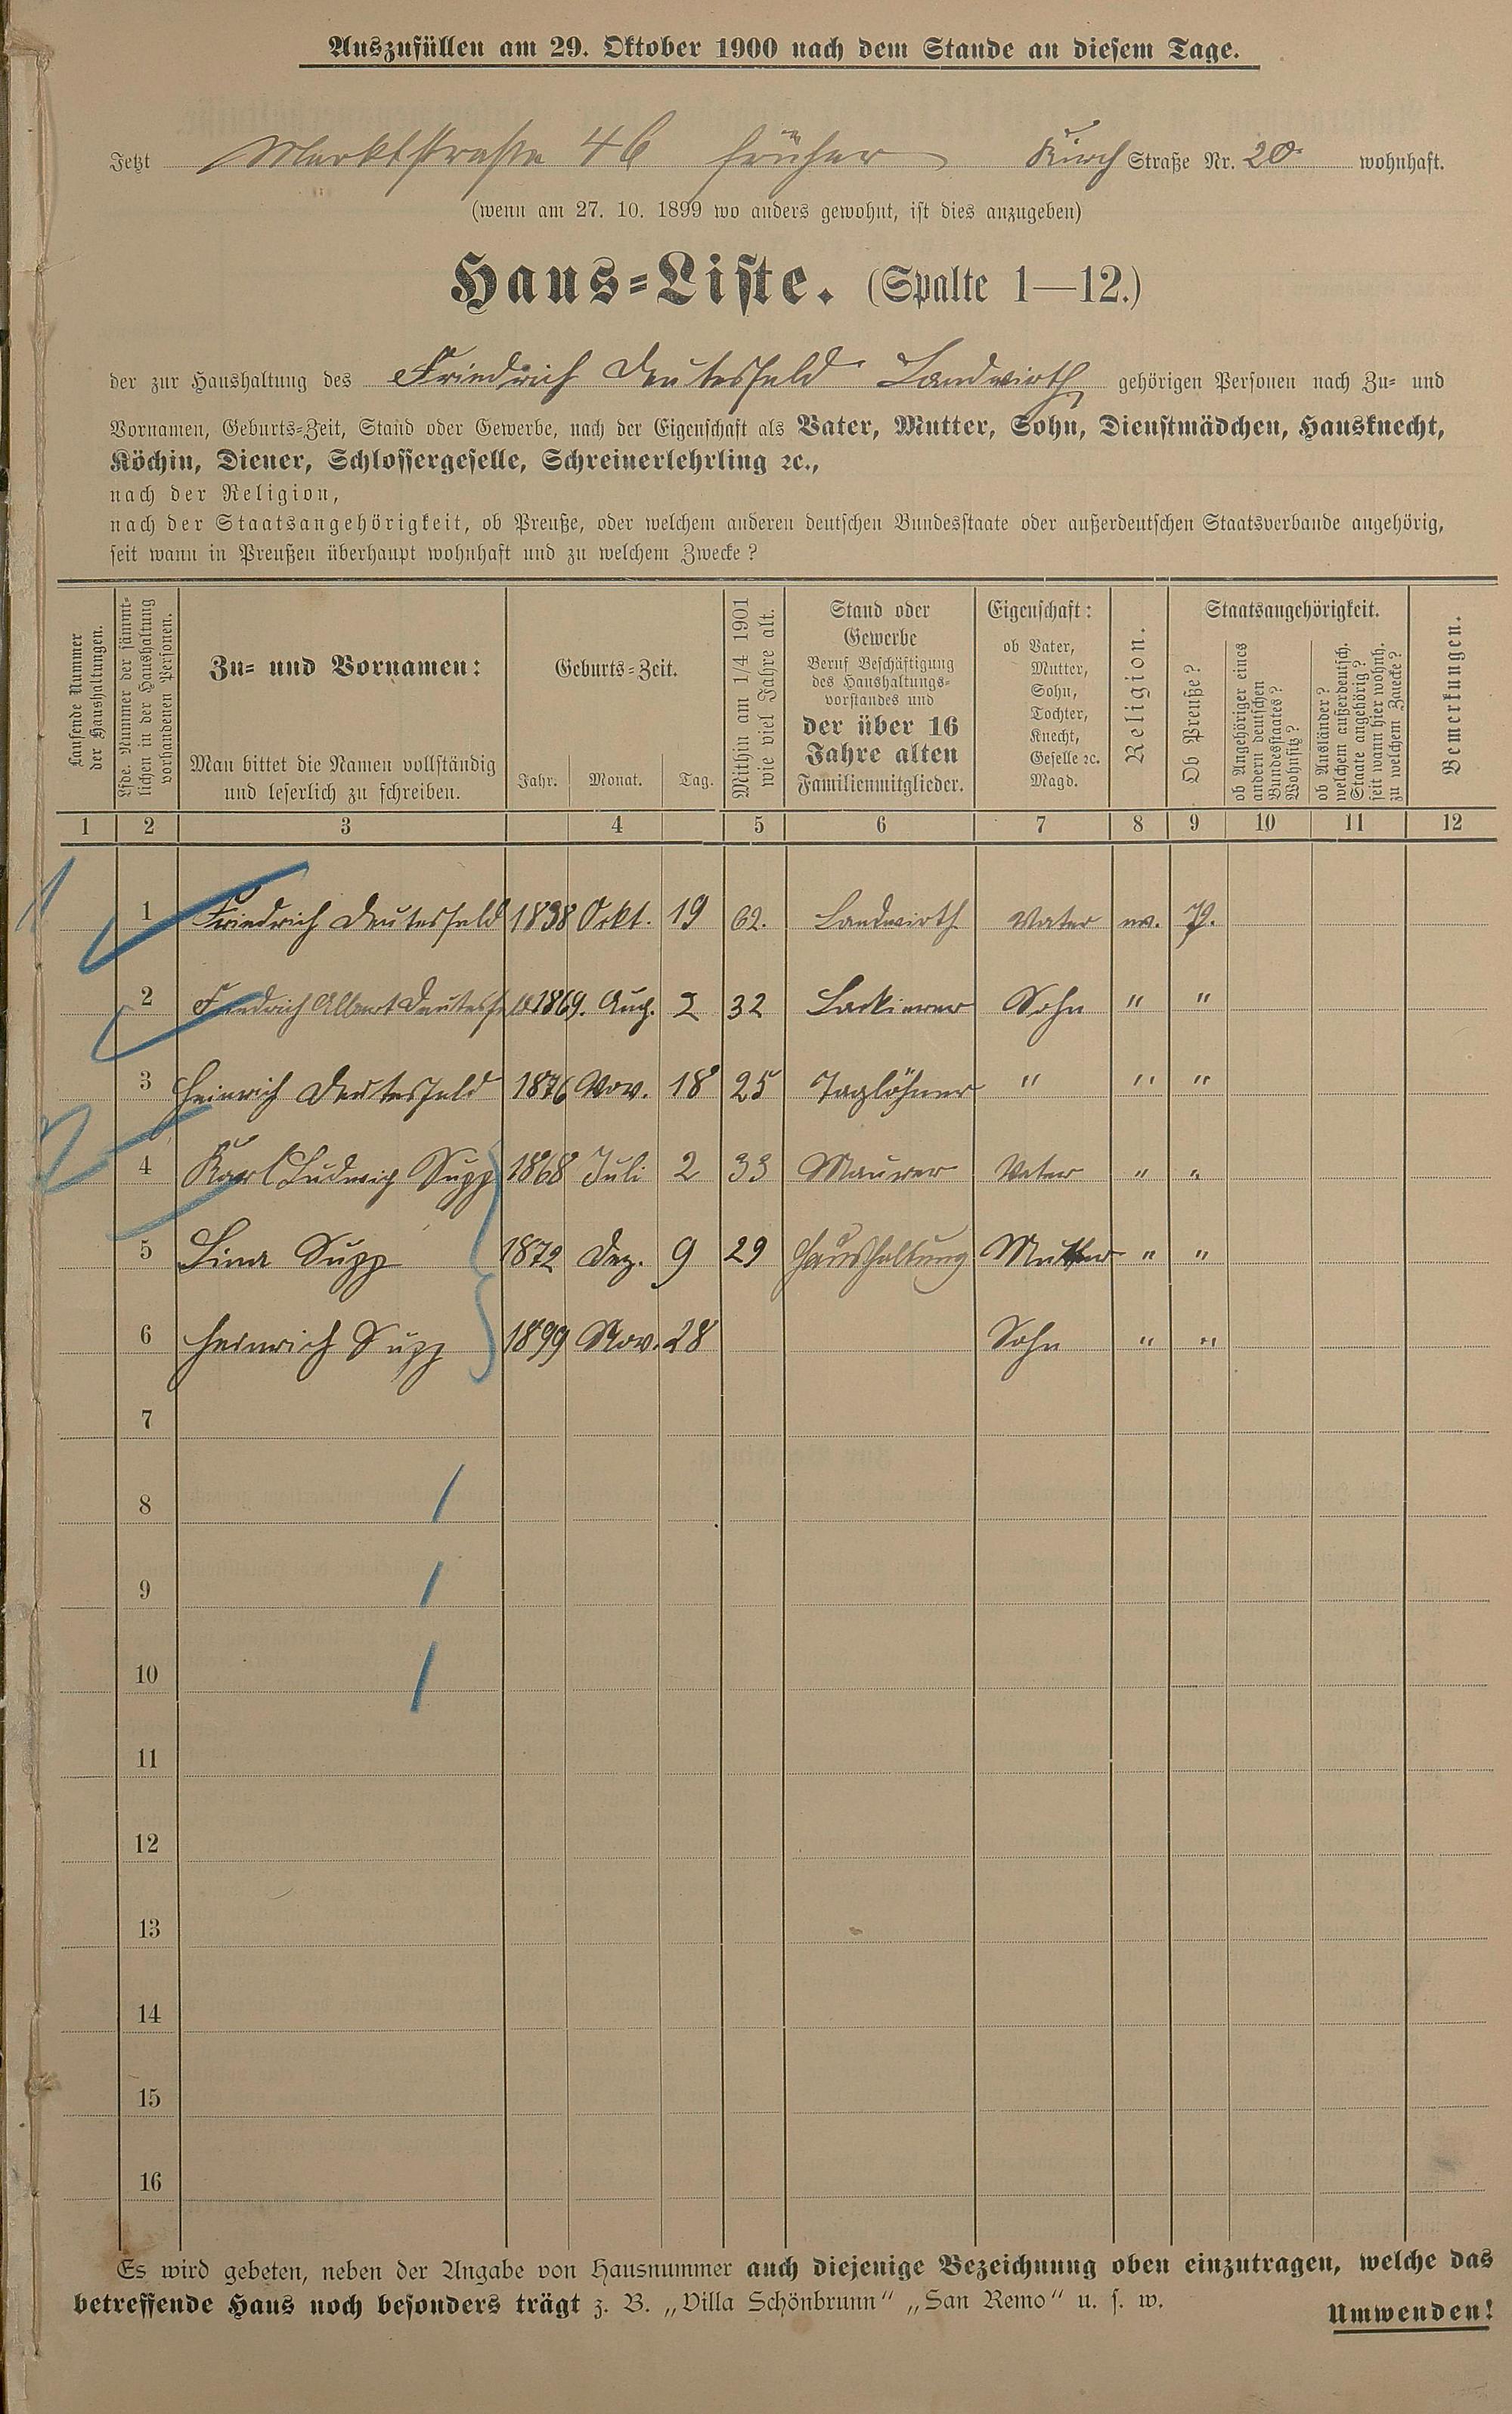 Auszufüllen am 29. Oktober 1900 nach dem Stande an diesem Tage.
Jetzt Marktstraße 46 früher Kirch Straße Nr. 20 wohnhaft.
(wenn am 27. 10. 1899 wo anders gewohnt, ist dies anzugeben)
Haus-Liste. (Spalte 1—12.)
der zur Haushaltung des Friedrich Deutesfeld Landwirth gehörigen Personen nach Zu- und
Vornamen, Geburts-Zeit, Stand oder Gewerbe, nach der Eigenschaft als Vater, Mutter, Sohn, Dienstmädchen, Hausknecht,
Köchin, Diener, Schlossergeselle, Schreinerlehrling ꝛc.,
nach der Religion,
nach der Staatsangehörigkeit, ob Preuße, oder welchem anderen deutschen Bundesstaate oder außerdeutschen Staatsverbande angehörig,
seit wann in Preußen überhaupt wohnhaft und zu welchem Zwecke?
Laufende Nummer
der Haushaltungen.
Lfde. Nummer der sämmt-
lichen in der Haushaltung
vorhandenen Personen.
Zu- und Vornamen:
Man bittet die Namen vollständig
und leserlich zu schreiben.
Geburts-Zeit.
Jahr. Monat. Tag.
Mithin am 1/4 1901
wie viel Jahre alt.
Stand oder
Gewerbe
Beruf Beschäftigung
des Haushaltungs-
vorstandes und
der über 16
Jahre alten
Familienmitglieder.
Eigenschaft:
ob Vater,
Mutter,
Sohn,
Tochter,
Knecht,
Geselle ꝛc.
Magd.
Religion.
Staatsangehörigkeit.
Ob Preuße?
ob Angehöriger eines
andern deutschen
Bundesstaates?
Wohnsitz?
ob Ausländer?
welchem außerdeutsch.
Staate angehörig?
seit wann hier wohnh.
zu welchem Zwecke?
Bemerkungen.
1 2 3 4 5 6 7 8 9 10 11 12
1 1 Friedrich Deutesfeld 1838 Okt. 19 62. Landwirth Vater ev. P.
2 Friedrich Albert Deutesfeld 1869. Aug. 2 32 Lackierer Sohn " "
3 Heinrich Deutesfeld 1876 Nov. 18 25 Taglöhner " " "
2 4 Karl Ludwig Supp 1868 Juli 2 33 Maurer Vater " "
5 Lina Supp 1872 Dez. 9 29 Haushaltung Mutter " "
6 Heinrich Supp 1899 Nov. 28 Sohn " "
7
8
9
10
11
12
13
14
15
16
Es wird gebeten, neben der Angabe von Hausnummer auch diejenige Bezeichnung oben einzutragen, welche das
betreffende Haus noch besonders trägt z. B. „Villa Schönbrunn" „San Remo" u. s. w.
Umwenden!